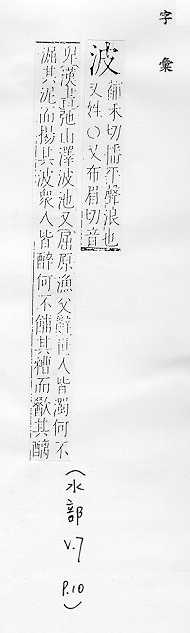 字 彙
波 補禾切播平聲浪也
又姓○又布眉切音
卑漢書弛山澤波池又屈原漁父辭世人皆濁何不
淈其泥而揚其波衆人皆醉何不餔其糟而歠其醨
(水部 v.7 p.10)